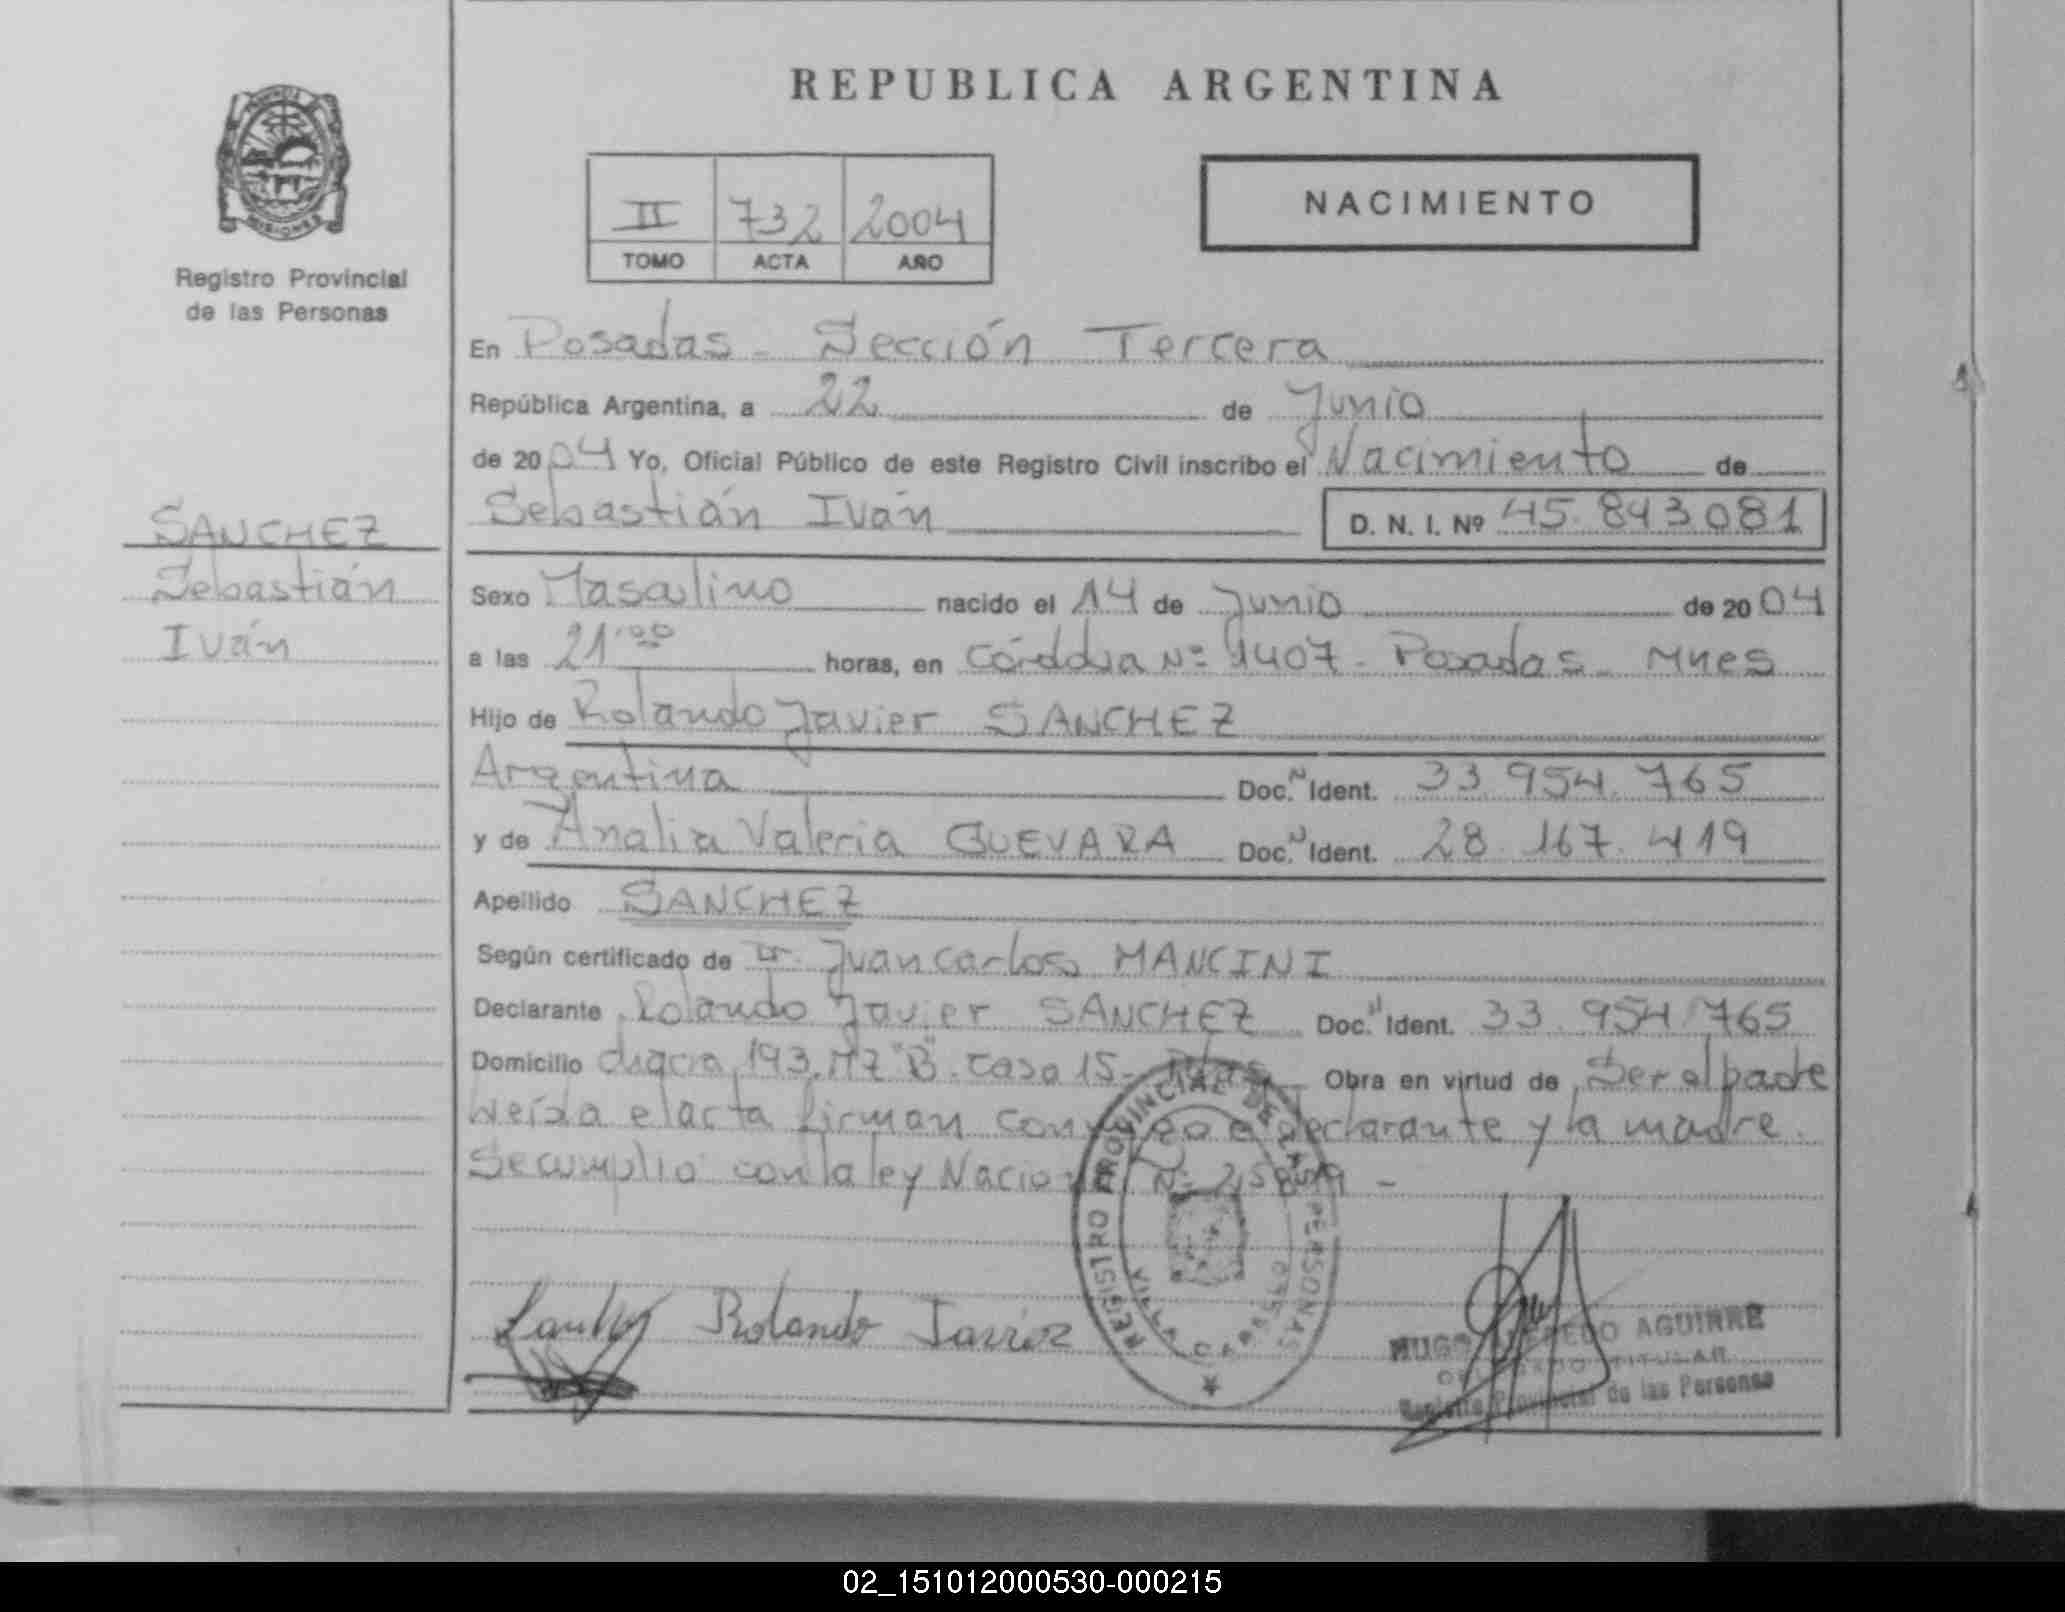 REPUBLICA ARGENTINA
PROVINCIA
MISIONES
Registro Provincial
de las Personas
II 732 2004
TOMO ACTA AÑO
NACIMIENTO
En Posadas - Sección Tercera
República Argentina, a 22 de Junio
de 2004 Yo, Oficial Público de este Registro Civil inscribo el Nacimiento de
Sebastián Iván D. N. I. Nº 45.843.081
SANCHEZ
Sebastián
Iván
Sexo Masculino nacido el 14 de Junio de 2004
a las 21:00 horas, en Córdoba Nº 1407 - Posadas - Mnes
Hijo de Rolando Javier SANCHEZ
Argentina Doc. N Ident. 33.954.765
y de Analia Valeria GUEVARA Doc. N Ident. 28.167.419
Apellido SANCHEZ
Según certificado de Dr. Juan Carlos MANCINI
Declarante Rolando Javier SANCHEZ Doc. N Ident. 33.954.765
Domicilio chacra 193. Mz "B". Casa 15- Obra en virtud de Ser el padre
leída el acta firman conmigo el declarante y la madre.
Se cumplio con la ley Nacional Nº -
Rolando Javier
REGISTRO PROVINCIAL DE LAS PERSONAS
VILLA CABELLO
HUGO AGUIRRE
TITULAR
Registro Provincial de las Personas
02_151012000530-000215